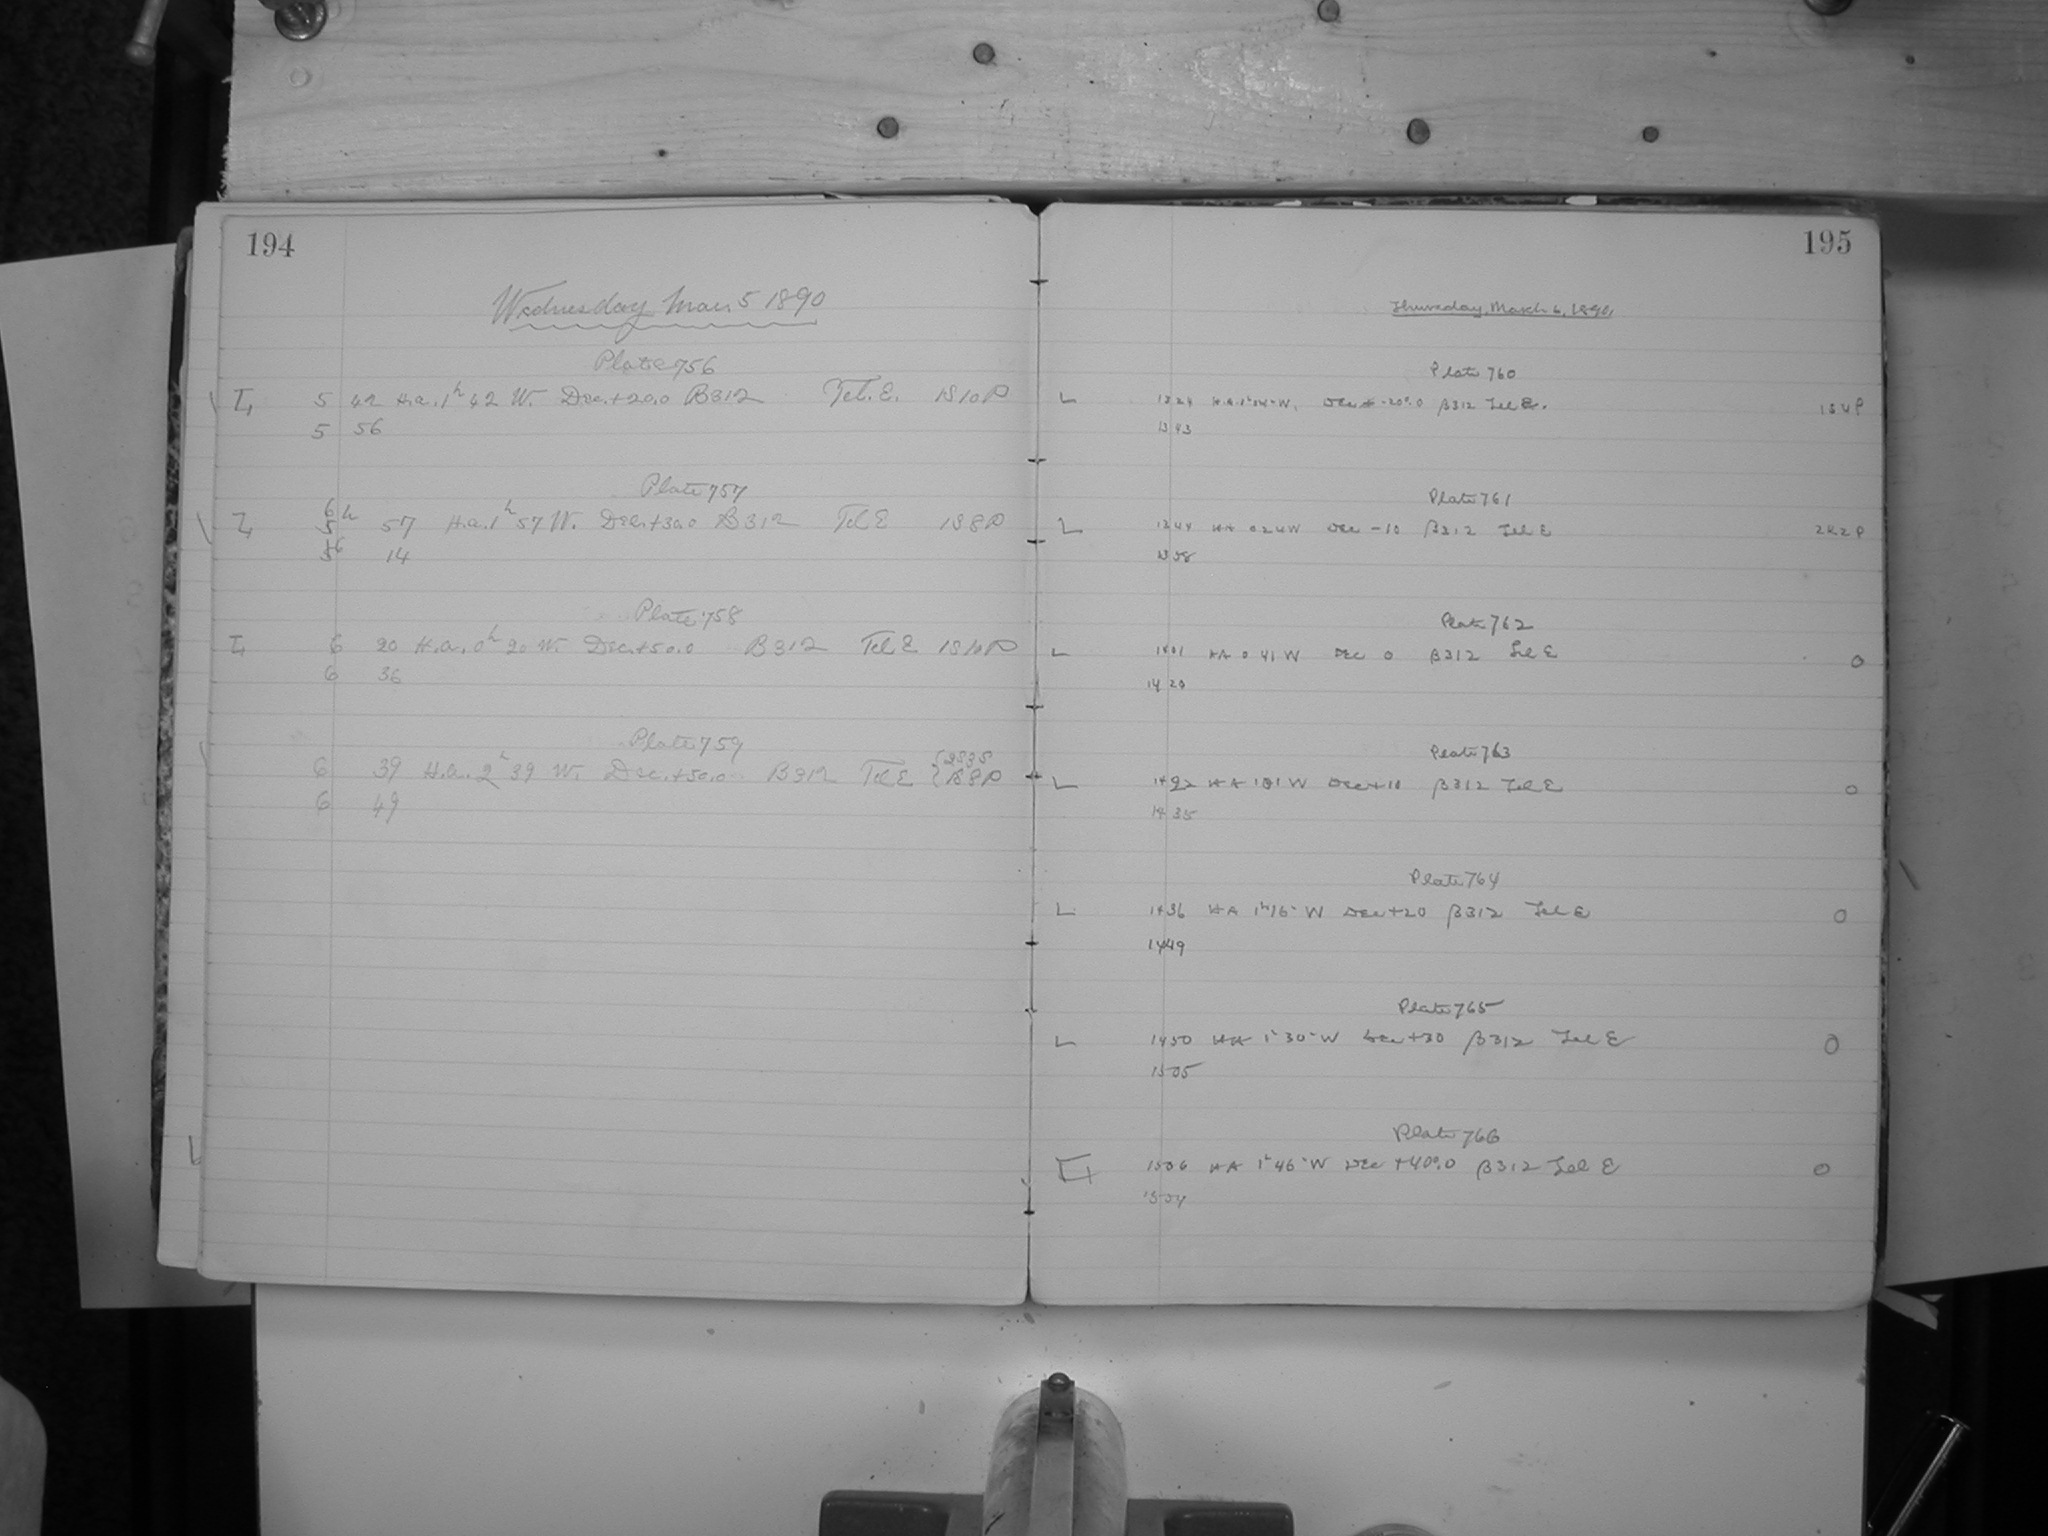 194
Wednesday Mar. 5 1890
Plate 756
5 42 H.a. 1h 42 W. Dec. +20.0 B312 Tel. E.
5 56
Plate 757
57 H.a. 1h 57 W. Dec. +30.0 B312 Tel E 188P
14
Plate 758
6 20 H.a. 0h 20 W. Dec. +50.0 B312 Tel E
6 36
Plate 759
6 39 H.a. 2h 39 W. Dec. +50.0 B312 Tel E
6 49
195
Thursday, March 6, 1890.
Plate 760
L 1324 Dec -20°.0 β312 Tel E.
13 43
Plate 761
L 1344 HA 0 24 W Dec -10 β312 Tel E 282P
13 58
Plate 762
L 1401 HA 0 41 W Dec 0 β312 Tel E 0
14 20
Plate 763
L HA W Dec +10 β312 Tel E 0
14 35
Plate 764
L 1436 HA 1h 16m W Dec +20 β312 Tel E 0
1449
Plate 765
L 1450 HA 1h 30m W Dec +30 β312 Tel E 0
1505
Plate 766
1506 HA 1h 46m W Dec +40°.0 β312 Tel E 0